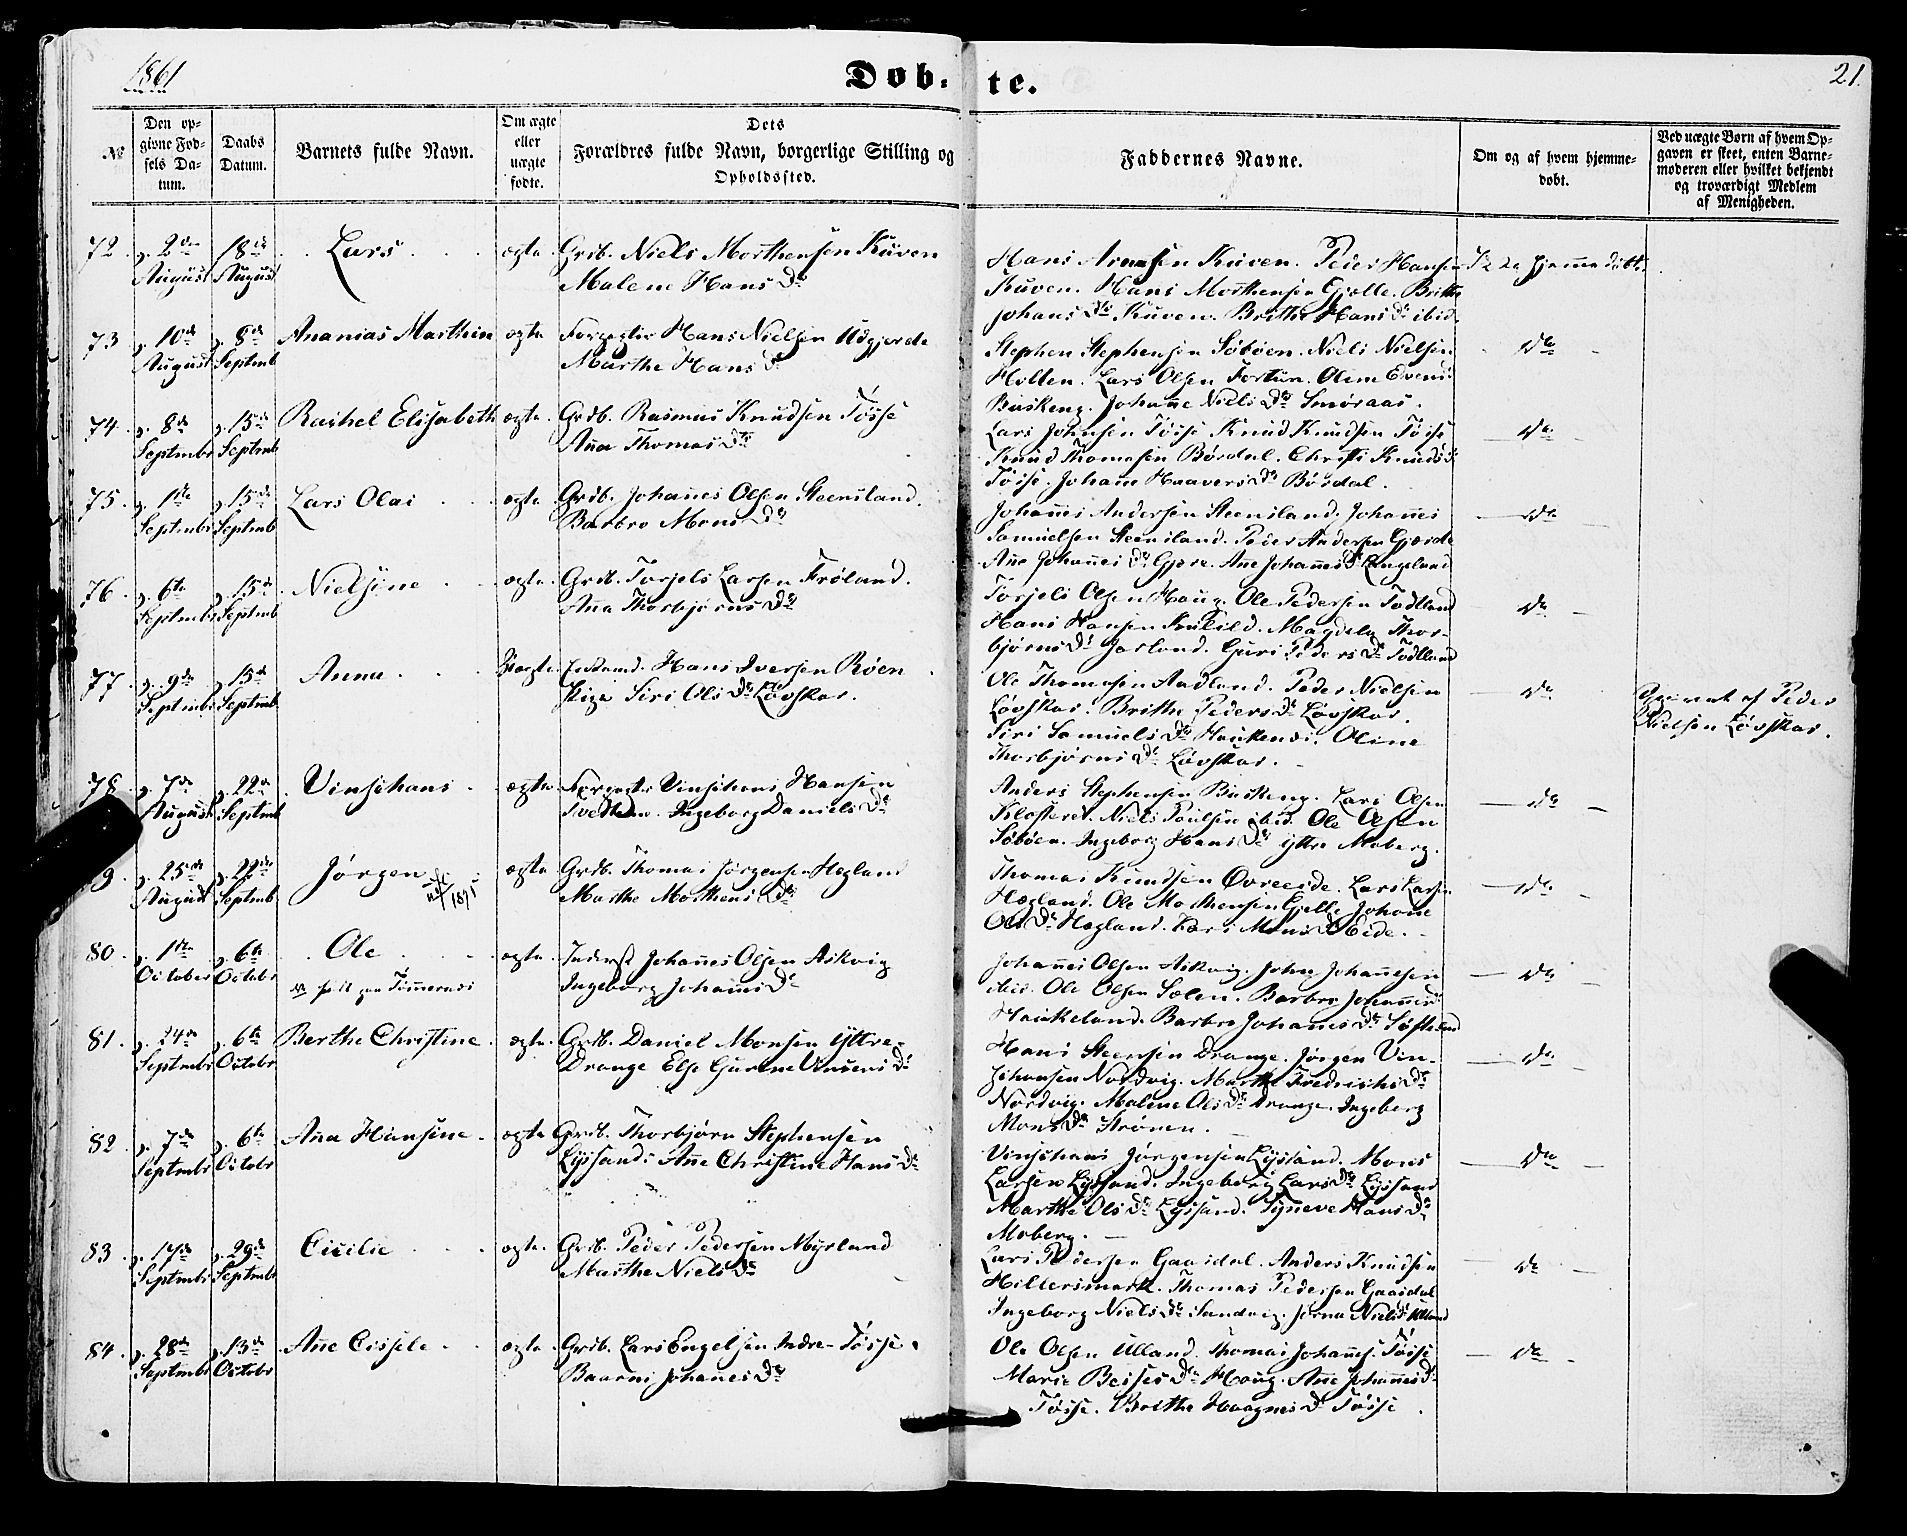 1861
Døb-te.
21.
№
Den op-
givne Fød-
sels Da-
tum.
Daabs
Datum.
Barnets fulde Navn.
Om ægte
eller
uægte
fødte.
Dets
Forældres fulde Navn, borgerlige Stilling og
Opholdssted.
Faddernes Navne.
Om og af hvem hjemme-
døbt.
Ved uægte Børn af hvem Op-
gaven er skeet, enten Barne-
moderen eller hvilket bekjendt
og troværdigt Medlem
af Menigheden.
72. 2den August 18de August
Lars
ægte
Grdb. Niels Morthensen Kuven
Malene Hans Dr
Hans Arnesen Kuven. Peder Hansen
Kuven. Hans Morthensen Gjelle. Brithe
Johans Dr Kuven. Brithe Hans Dr ibid.
Ikke hjemmedøbt.
73. 10de August 8de Septmb
Ananias Marthin
ægte
Hans Nielsen Udgjerde
Marthe Hans Dr
Stephen Stephensen Søbøen. Niels Nielsen
Holten. Lars Olsen Fortun.
Buskeng. Johanne Niels Dr Smøraas.
Do
74. 8de Septmbr 15de Septmb
Rachel Elisabeth
ægte
Grdb. Rasmus Knudsen Tøsse
Anna Thomas Dr
Lars Johnsen Tøsse Knud Knudsen Tøsse
Knud Thomasen Børdal. Christi Knuds D
Tøsse. Johanne Haavers Dr Børdal.
Do
75. 1ste Septmbr 15de Septmb
Lars Olai
ægte
Grdb. Johannes Olsen Steensland.
Barbro Mons Dr
Johannes Andersen Steensland. Johannes
Samuelsen Steensland. Peder Andersen Gjerde
Ane Johannes Dr Gjere. Ane Johannes Dr Engeland
Do
76. 6te Septmbr 15de Septmb
Nielsine
ægte
Grdb. Torjels Larsen Frøland.
Anna Thorbjørns Dr
Torjels Olsen Haug. Ole Pedersen Todland
Hans Hansen. Magdela Thor-
bjørns Dr. Guri Peders Dr Todland
Do
77. 9de Septmbr 15de Septmb
Anna
Uægte
Hans Iversen Røen
Pige Siri Ols Dr Løvskar.
Ole Thomasen Aadland. Peder Nielsen
Løvskar. Brithe Peders Dr Løvskar.
Siri Samuels Dr Haukenæs. Oline
Thorbjørns Dr Løvskar.
Do
af Peder
Nielsen Løvskar.
78. 7de August 22de Septmb
Vinsjhans
ægte
Vinsjhans Hansen
Ingeborg Daniels Dr
Anders Stephensen Buskeng. Lars Olsen
Klosteret. Niels Poulsen ibid. Ole Olsen
Søbøen. Ingeborg Hans Dr Yttre Moberg.
Do
9 25de August 22de Septmb
Jørgen
1895
ægte
Grdb. Thomas Jørgensen Hegland
Marthe Morthens Dr
Thomas Knudsen Øvreeide. Lars Larsen
Hegland. Ole Morthensen Gjelle Johane
Ols Dr Hegland. Kari Mons Dr Eide.
Do
80 1ste October 6te Octobr
Ole
født paa Tømmernæs
ægte
Inderst Johannes Olsen Askvig
Ingeborg Johannes Dr
Johannes Olsen Askvig. John Johannesen
ibid. Ole Olsen Sælen. Barbro Johannes D
Haukeland. Barbro Johannes Dr Søfteland
Do
81. 24de Septmbr 6te Octobr
Berthe Christine
ægte
Grdb. Daniel Monsen Yttre-
Drange Else Gurine Vinsens Dr
Hans Steensen Drange. Jørgen Vin-
sjhansen Nordvig. Marthe Fredrichs Dr
Nordvig. Malene Ols Dr Drange. Ingeborg
Mons Dr Strønen.
Do
82 7de Septmbr 6te Octobr
Ana Hansine
ægte
Grdb. Thorbjørn Stephensen
Lyssand Ane Christine Hans Dr
Vinsjhans Jørgensen Lyssand. Mons
Larsen Lyssand. Ingeborg Lars Dr Lyssand
Marthe Ols Dr Lyssand. Synneve Hans Dr
Moberg.
Do
83 17de Septmbr 29de Septmbr
Cicilie
ægte.
Grdb. Peder Pedersen Myrland
Marthe Niels Dr
Lars Pedersen Gaasdal. Anders Knudsen
Hillersmark. Thomas Pedersen Gaasdal
Ingeborg Niels Dr Sandvig.
Do
84. 28de Septmbr 13de Octobr
Ane Cissele
ægte
Grdb. Lars Engelsen Indre-Tøsse.
Baarni Johannes Dr
Ole Olsen Ulland. Thomas Johannes. Tøsse
Marie Beises Dr Haug. Ane Johannes Dr
Tøsse. Brithe Haagnes Dr Tøsse.
Do